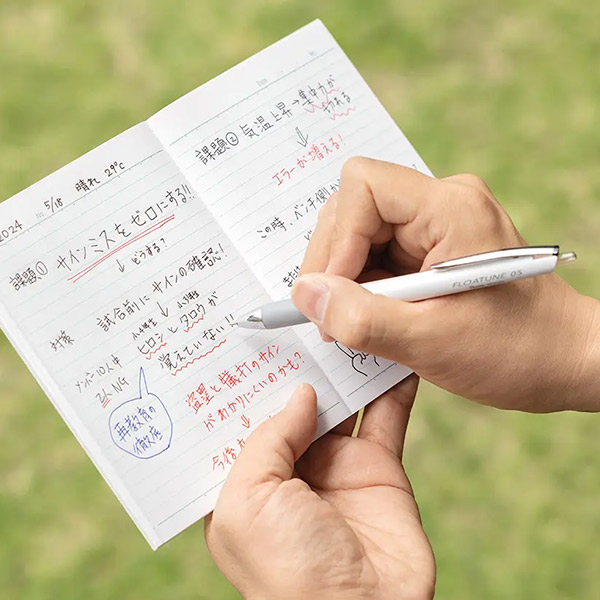 2024
No. 5/18 晴れ 29℃
課題① サインミスをゼロにする!!
↓ どうする?
対象 試合前にサインの確認!
メンバー10人中
2人NG
小4年生 小3年生
ヒロシとタロウが
覚えていない!!
再教育の
徹底
盗塁と犠打のサイン
がわかりにくいのかも?
↓
今後
Date
課題② 気温上昇→集中力が
切れる
↓
エラーが増える!
この時、ベンチ側か
FLOATUNE 05